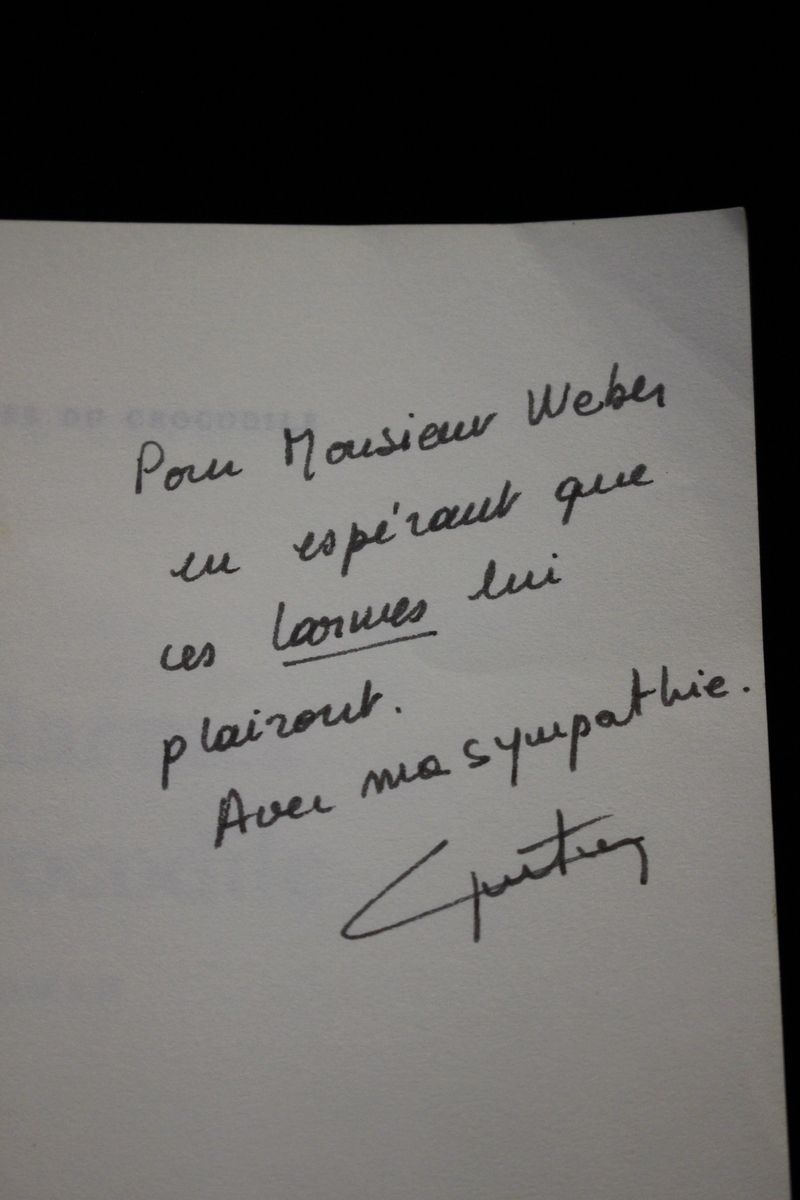 ES DU CROCODILE
Pour Monsieur Weber
en espérant que
ces larmes lui
plairont.
Avec ma sympathie.